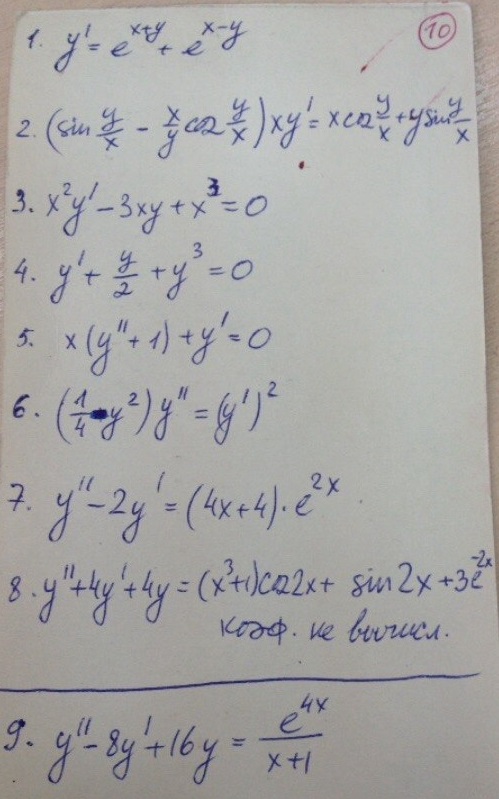 10
1. y' = e^{x+y} + e^{x-y}
2. (sin y/x - x/y cos y/x) xy' = x cos y/x + y sin y/x
3. x²y' - 3xy + x³ = 0
4. y' + y/2 + y³ = 0
5. x(y'' + 1) + y' = 0
6. (1/4 - y²) y'' = (y')²
7. y'' - 2y' = (4x+4)·e^{2x}
8. y'' + 4y' + 4y = (x³+1)cos2x + sin2x + 3e^{-2x}
коэф. не вычисл.
9. y'' - 8y' + 16y = e^{4x}/(x+1)